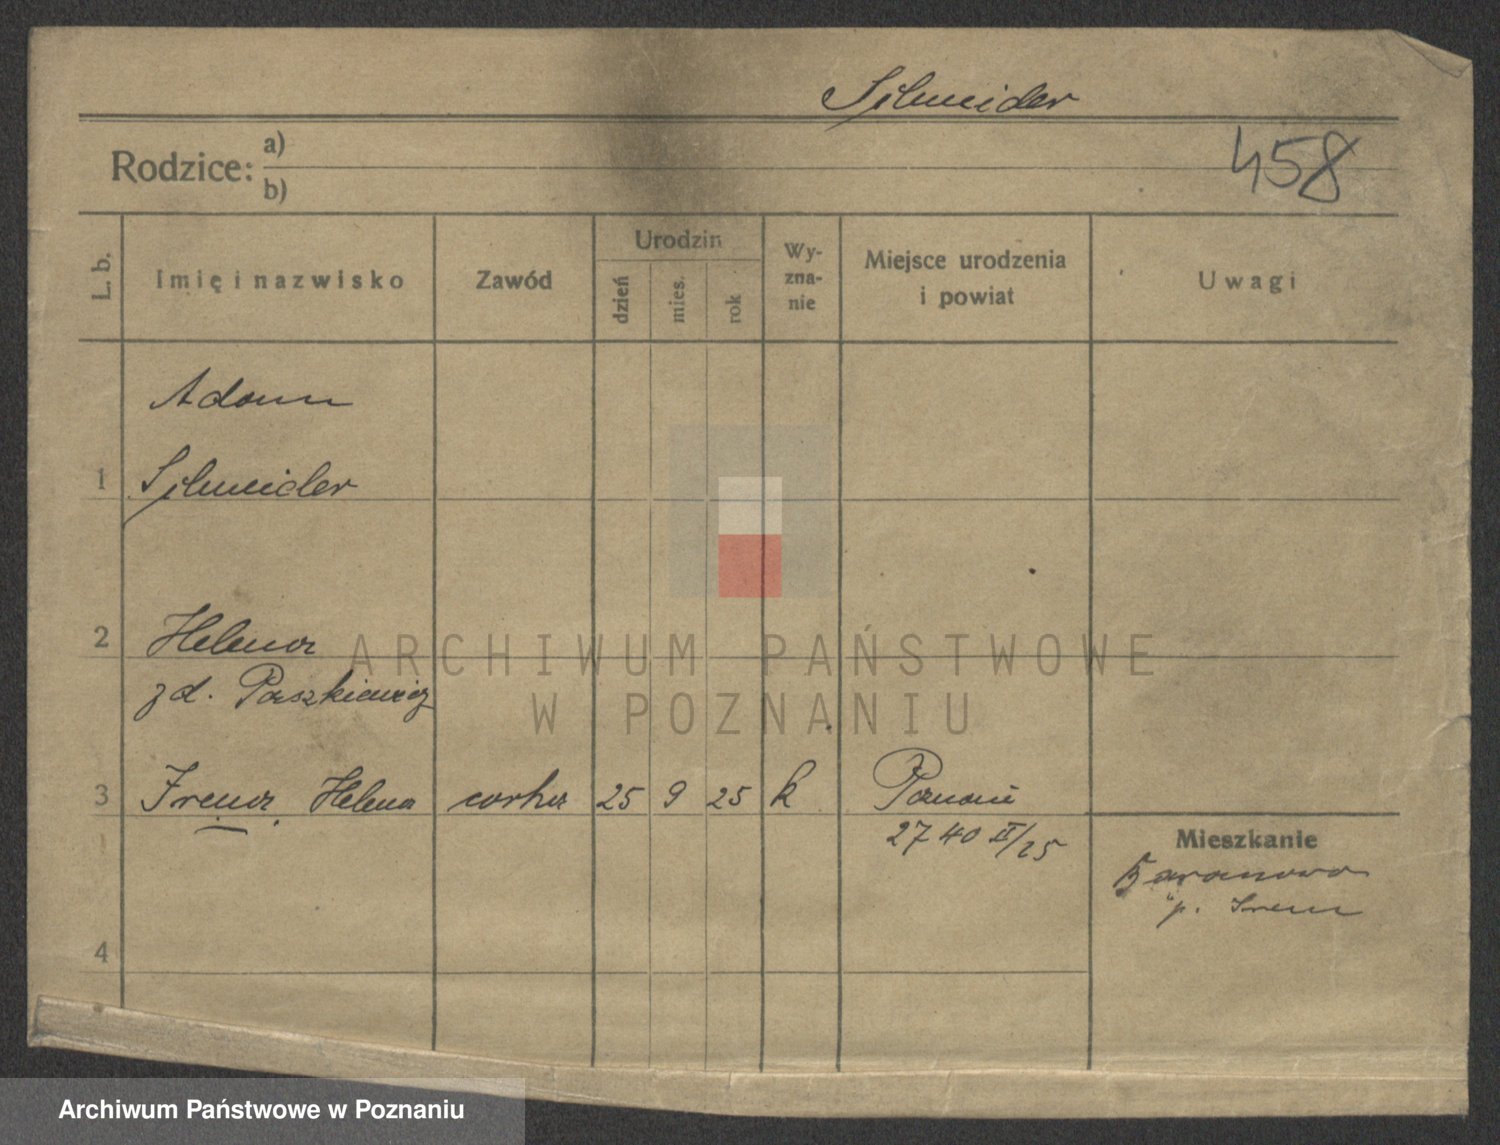 Schneider
458
Rodzice: a)
b)
L. b.
Imię i nazwisko
Zawód
Urodzin
dzień
mies.
rok
Wy-
zna-
nie
Miejsce urodzenia
i powiat
Uwagi
Adam
1 Schneider
2 Helena
zd. Paszkiewicz
3 Irena Helena córka 25 9 25 k Poznań
2740 II/25
Mieszkanie
Baranowo
p. Śrem
4
ARCHIWUM PAŃSTWOWE
W POZNANIU
Archiwum Państwowe w Poznaniu